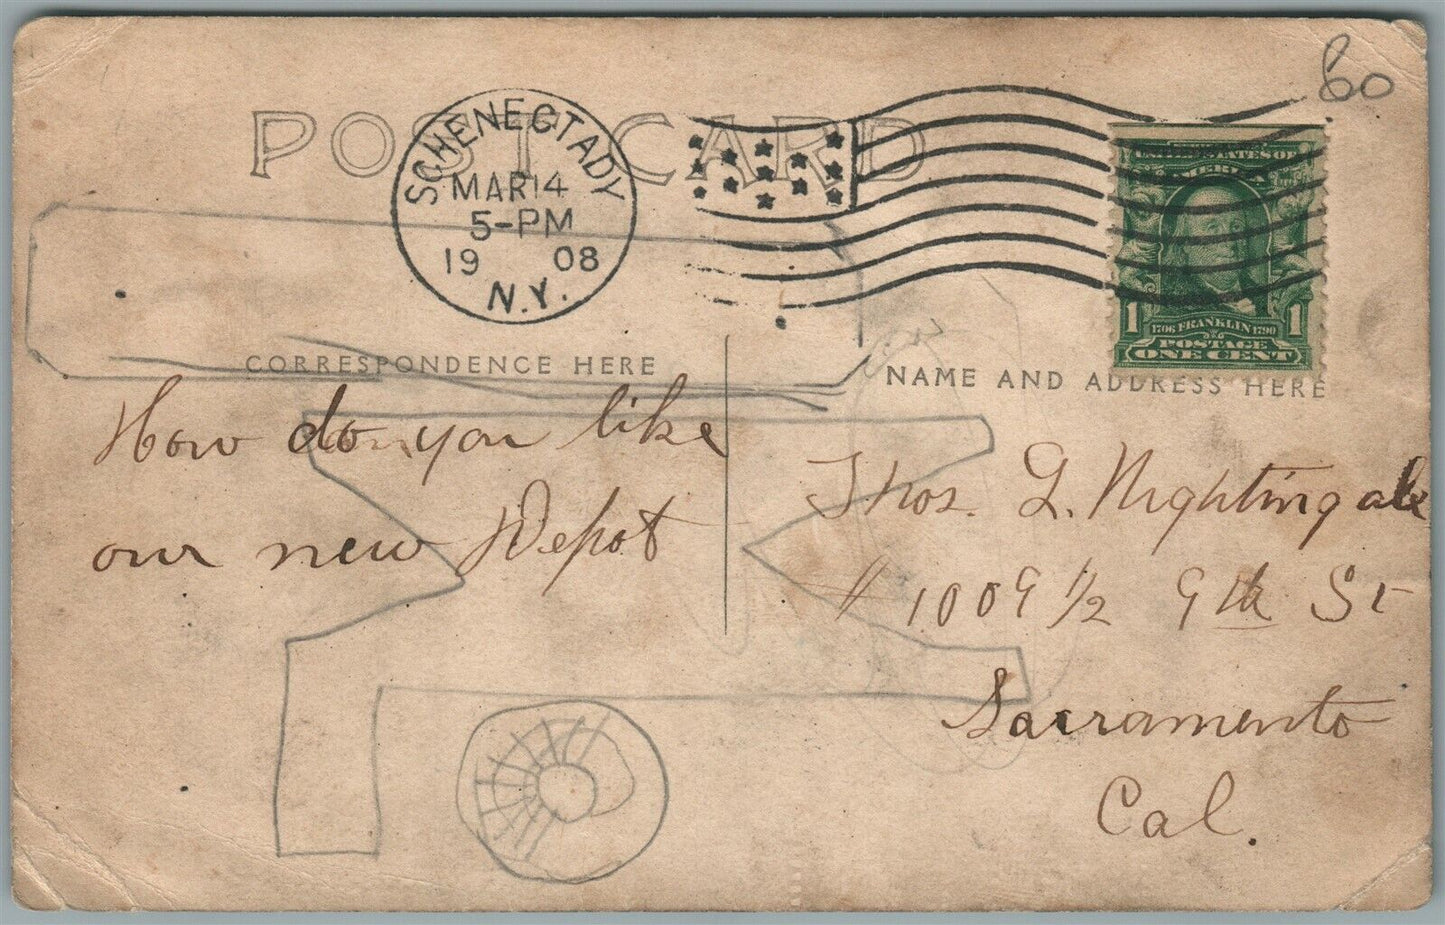 60
POST CARD
SCHENECTADY
MAR 14
5-PM
19 08
N.Y.
UNITED STATES OF
AMERICA
1 1706 FRANKLIN 1790 1
POSTAGE
ONE CENT
CORRESPONDENCE HERE
NAME AND ADDRESS HERE
How do you like
our new Depot
Thos. G. Nightingale
# 1009 1/2 9th St
Sacramento
Cal.